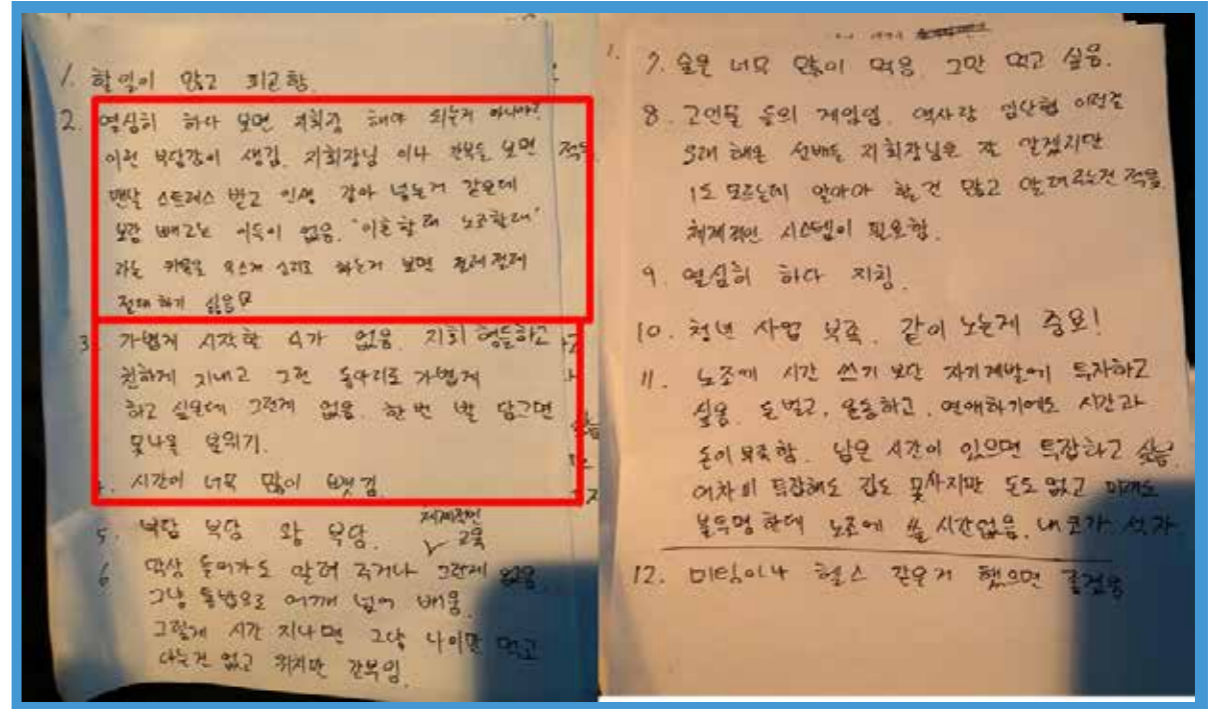 1. 할일이 많고 피곤함.
2. 열심히 하다 보면 지회장 해야 되는거 아니야?
이런 부담감이 생김. 지회장님 이나 간부들 보면
맨날 스트레스 받고 인생 갈아 넣는거 같은데
보람 빼고는 이득이 없음. "이혼할래 노조할래"
라는 키워드 우스게 소리로 하는거 보면 절레절레
절대 하기 싫음
3. 가볍게 시작할 수가 없음. 지회 형들하고
친하게 지내고 그런 동아리로 가볍게
하고 싶은데 그런게 없음. 한 번 발 담그면
못나올 분위기.
4. 시간이 너무 많이 뺏김.
5. 부담 부담 왕 부담. 체계적인
교육
6 막상 들어가도 알려 주거나 그런게 없음
그냥 통밥으로 어깨 넘어 배움.
그렇게 시간 지나면 그냥 나이만 먹고
아는건 없고 위치만 간부임.
7. 술을 너무 많이 먹음. 그만 먹고 싶음.
8. 고인물 들의 게임임. 역사랑 임단협 이런걸
오래 해온 선배들 지회장님은 잘 알겠지만
1도 모르는데 알아야 할건 많고 알려주는건 적음.
체계적인 시스템이 필요함.
9. 열심히 하다 지침.
10. 청년 사업 부족. 같이 노는게 중요!
11. 노조에 시간 쓰기 보단 자기계발에 투자하고
싶음. 돈벌고, 운동하고, 연애하기에도 시간과
돈이 부족함. 남은 시간이 있으면 투잡하고 싶음.
어차피 투잡해도 집도 못사지만 돈도 없고 미래도
불투명 한데 노조에 쓸 시간없음. 내 코가 석자.
12. 미팅이나 헬스 같은거 했으면 좋겠음